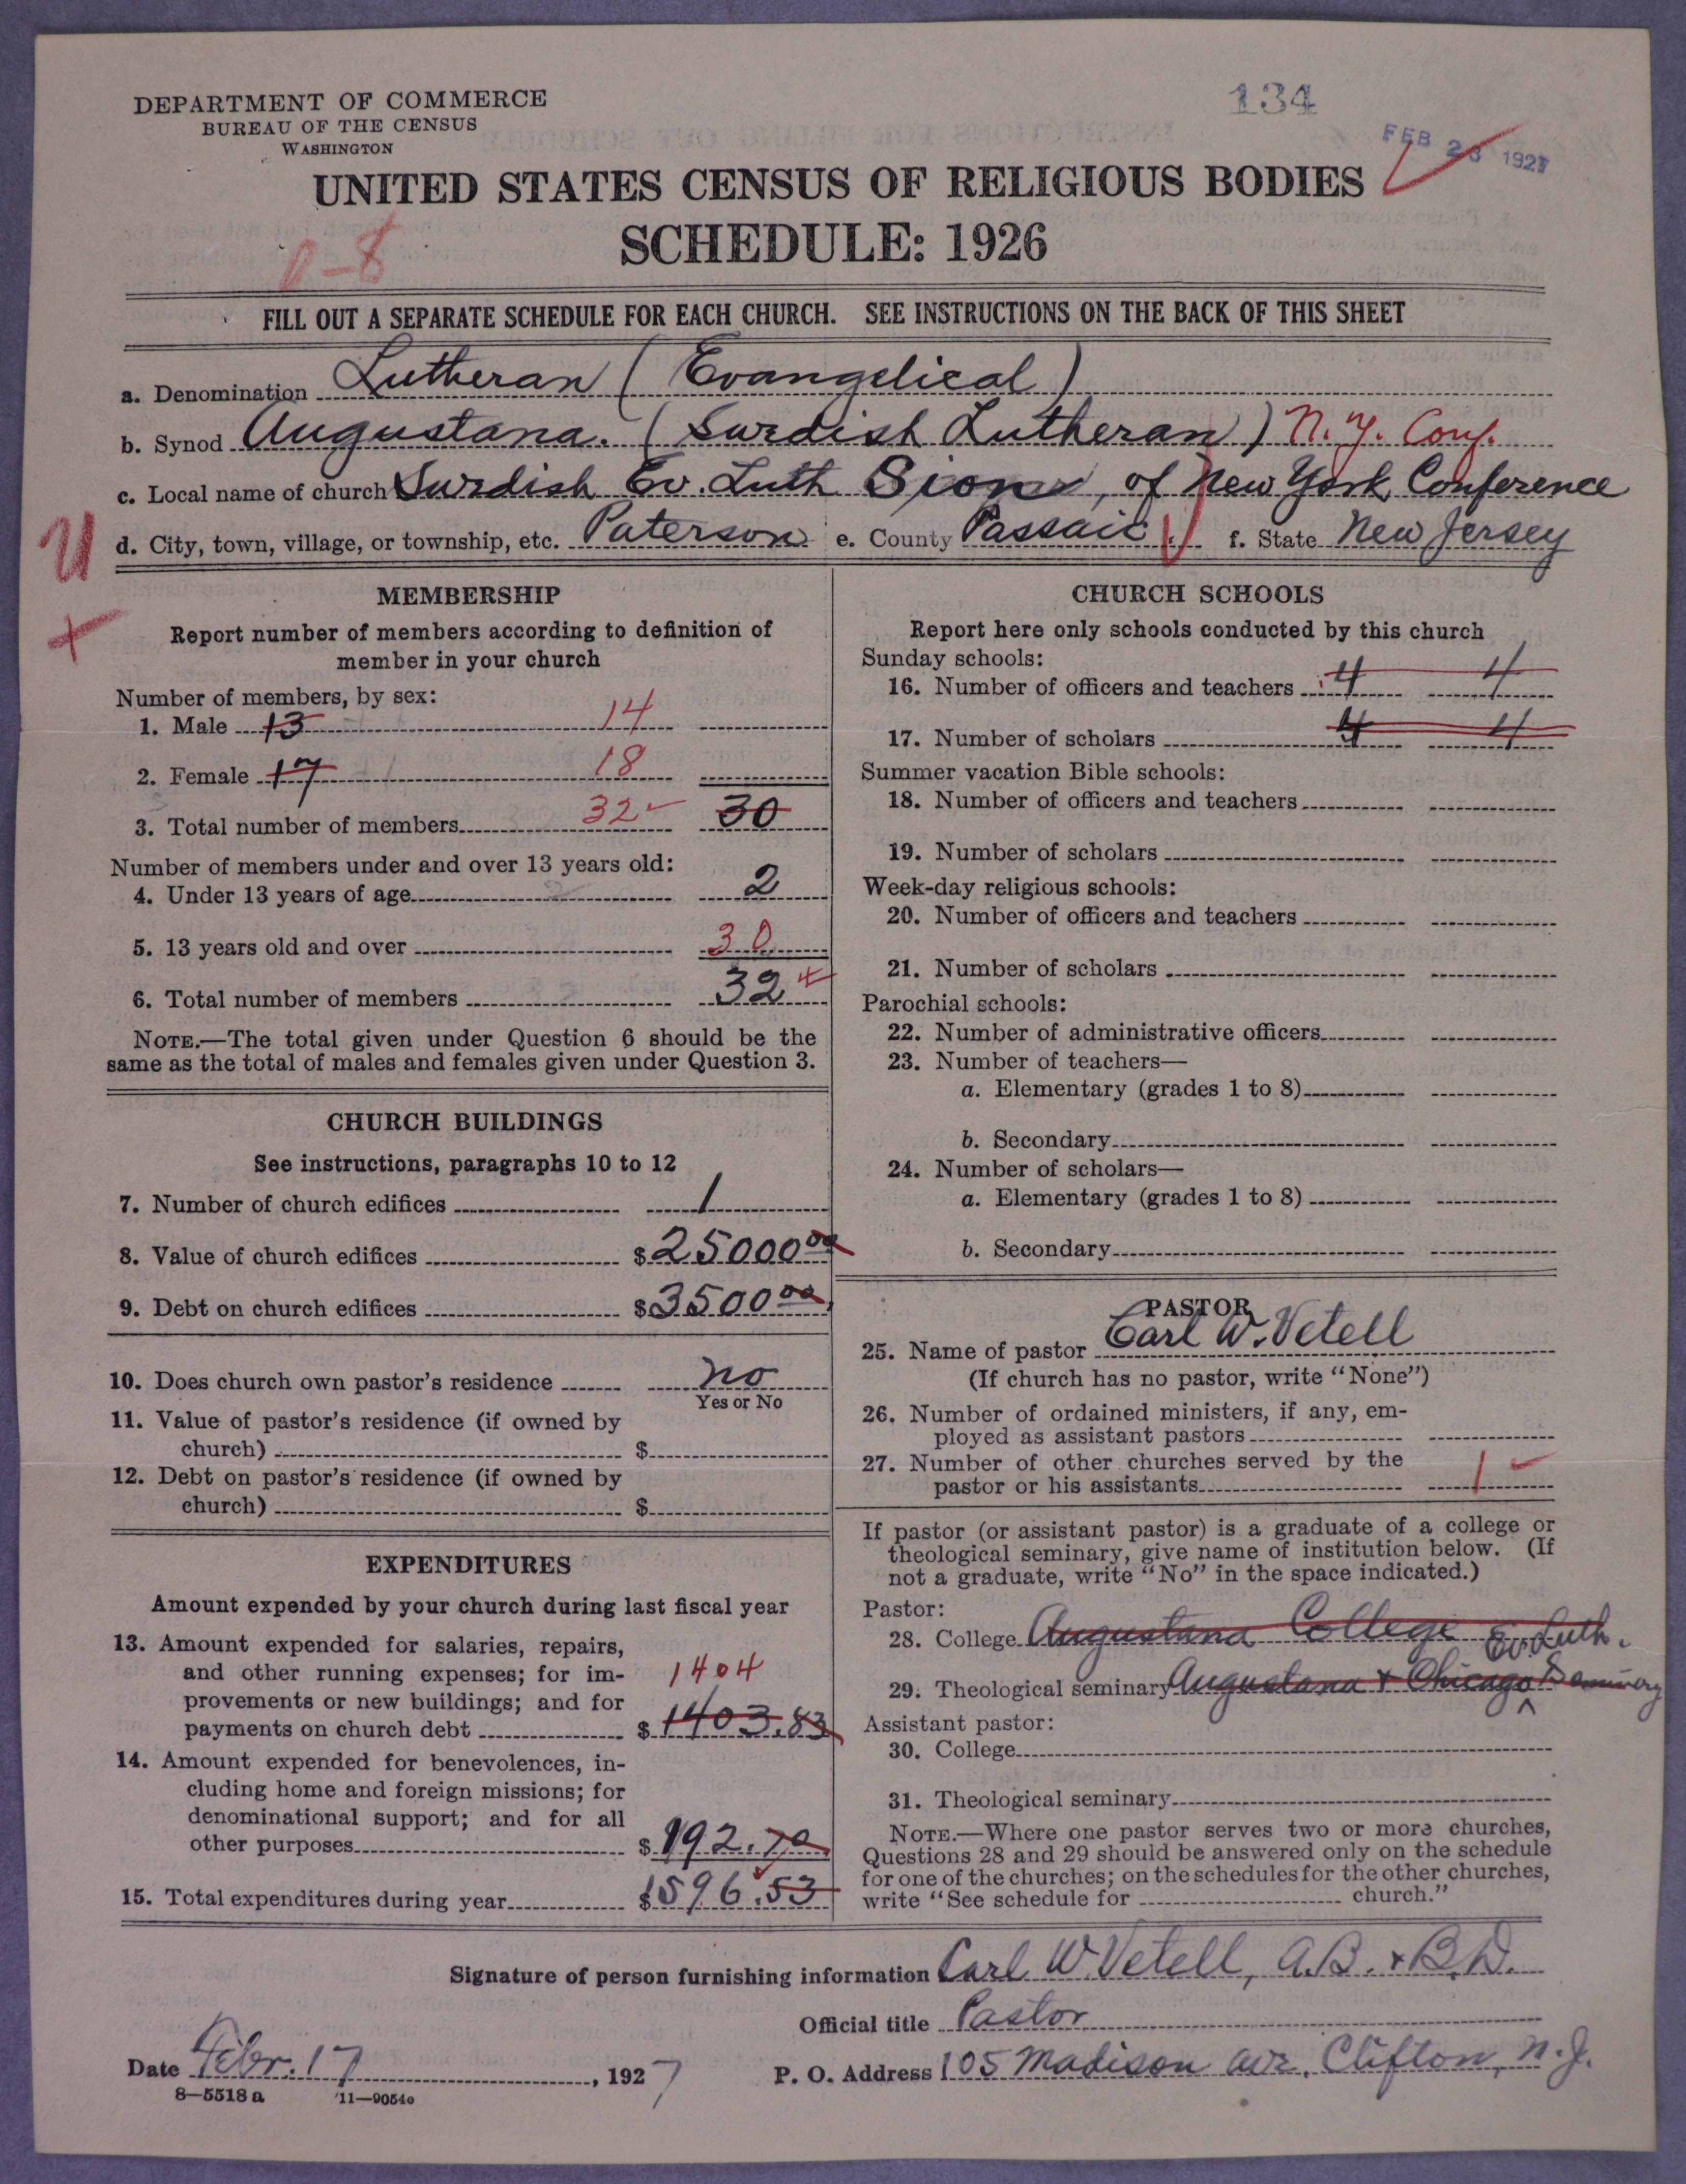 DEPARTMENT OF COMMERCE
BUREAU OF THE CENSUS
WASHINGTON
134
FEB 23 1927
UNITED STATES CENSUS OF RELIGIOUS BODIES
SCHEDULE: 1926
FILL OUT A SEPARATE SCHEDULE FOR EACH CHURCH. SEE INSTRUCTIONS ON THE BACK OF THIS SHEET
a. Denomination Lutheran (Evangelical)
b. Synod Augustana. (Swedish Lutheran) N.Y. Conf.
c. Local name of church Swedish Ev. Luth Sion, of New York Conference
d. City, town, village, or township, etc. Paterson e. County Passaic. f. State New Jersey
MEMBERSHIP
Report number of members according to definition of
member in your church
Number of members, by sex:
1. Male 13 14
2. Female 17 18
3. Total number of members 32 30
Number of members under and over 13 years old:
4. Under 13 years of age 2
5. 13 years old and over 30
6. Total number of members 32
NOTE.—The total given under Question 6 should be the
same as the total of males and females given under Question 3.
CHURCH BUILDINGS
See instructions, paragraphs 10 to 12
7. Number of church edifices 1
8. Value of church edifices $25000 00
9. Debt on church edifices $3500 00
10. Does church own pastor's residence no
Yes or No
11. Value of pastor's residence (if owned by
church) $
12. Debt on pastor's residence (if owned by
church) $
EXPENDITURES
Amount expended by your church during last fiscal year
13. Amount expended for salaries, repairs,
and other running expenses; for im- 1404
provements or new buildings; and for
payments on church debt $1403.83
14. Amount expended for benevolences, in-
cluding home and foreign missions; for
denominational support; and for all
other purposes $192.70
15. Total expenditures during year $1596.53
CHURCH SCHOOLS
Report here only schools conducted by this church
Sunday schools:
16. Number of officers and teachers 4 4
17. Number of scholars 4 4
Summer vacation Bible schools:
18. Number of officers and teachers
19. Number of scholars
Week-day religious schools:
20. Number of officers and teachers
21. Number of scholars
Parochial schools:
22. Number of administrative officers
23. Number of teachers—
a. Elementary (grades 1 to 8)
b. Secondary
24. Number of scholars—
a. Elementary (grades 1 to 8)
b. Secondary
PASTOR
25. Name of pastor Carl W. Vetell
(If church has no pastor, write "None")
26. Number of ordained ministers, if any, em-
ployed as assistant pastors
27. Number of other churches served by the
pastor or his assistants 1
If pastor (or assistant pastor) is a graduate of a college or
theological seminary, give name of institution below. (If
not a graduate, write "No" in the space indicated.)
Pastor:
28. College Augustana College
Ev. Luth.
29. Theological seminary Augustana + Chicago Seminary
Assistant pastor:
30. College
31. Theological seminary
NOTE.—Where one pastor serves two or more churches,
Questions 28 and 29 should be answered only on the schedule
for one of the churches; on the schedules for the other churches,
write "See schedule for church."
Signature of person furnishing information Carl W. Vetell, A.B. + B.D.
Official title Pastor
Date Febr. 17, 1927 P. O. Address 105 Madison Ave, Clifton, N.J.
8—5518 a 11—9054c